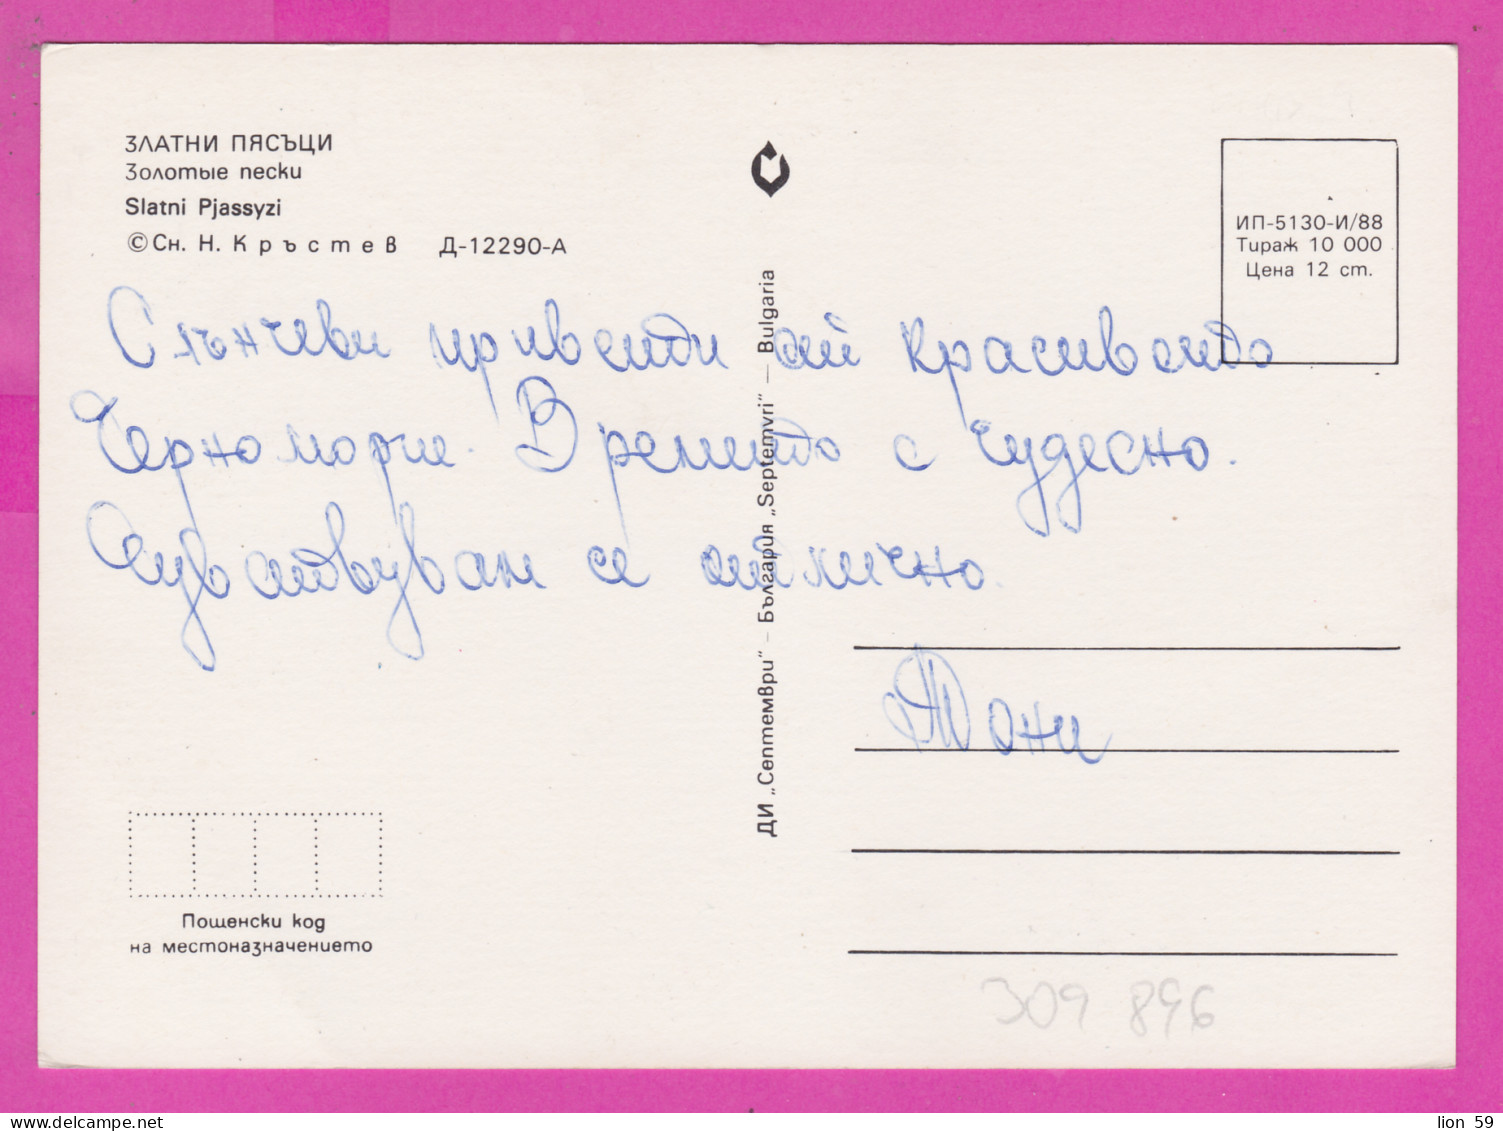 ЗЛАТНИ ПЯСЪЦИ
Золотые пески
Slatni Pjassyzi
© Сн. Н. Кръстев Д-12290-А
ИП-5130-И/88
Тираж 10 000
Цена 12 ст.
Слънчеви приветди от красивото
Черноморие. Времето е чудесно.
Чувствувам се отлично.
Тони
ДИ „Септември" – България „Septemvri" – Bulgaria
Пощенски код
на местоназначението
309 896
lion 59